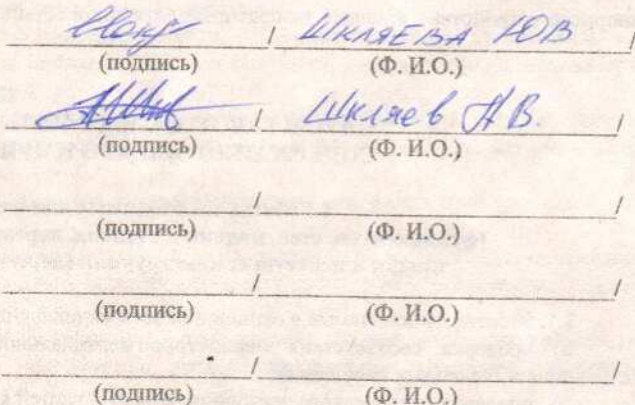 / ШКЛЯЕВА ЮВ /
(подпись) (Ф. И.О.)
/ Шкляев А В. /
(подпись) (Ф. И.О.)
/ /
(подпись) (Ф. И.О.)
/ /
(подпись) (Ф. И.О.)
/ /
(подпись) (Ф. И.О.)